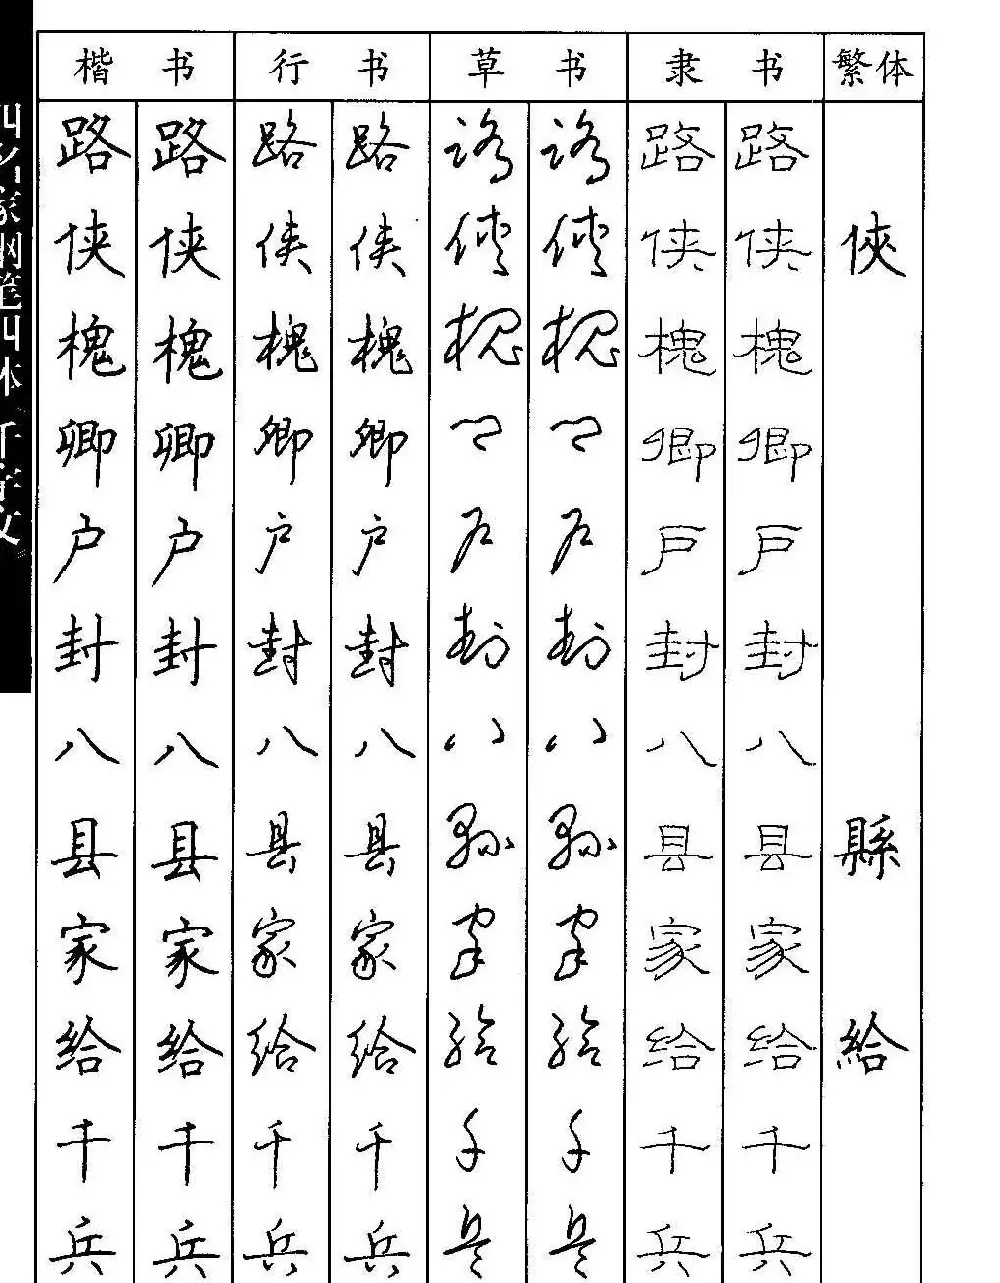 楷书 行书 草书 隶书 繁体
路 路 路 路 路 路 路 路
侠 侠 侠 侠 侠 侠 侠 侠 俠
槐 槐 槐 槐 槐 槐 槐 槐
卿 卿 卿 卿 卿 卿 卿 卿
户 户 户 户 户 户 户 户
封 封 封 封 封 封 封 封
八 八 八 八 八 八 八 八
县 县 县 县 县 县 县 县 縣
家 家 家 家 家 家 家 家
给 给 给 给 给 给 给 给 給
千 千 千 千 千 千 千 千
兵 兵 兵 兵 兵 兵 兵 兵
四名家钢笔四体千字文